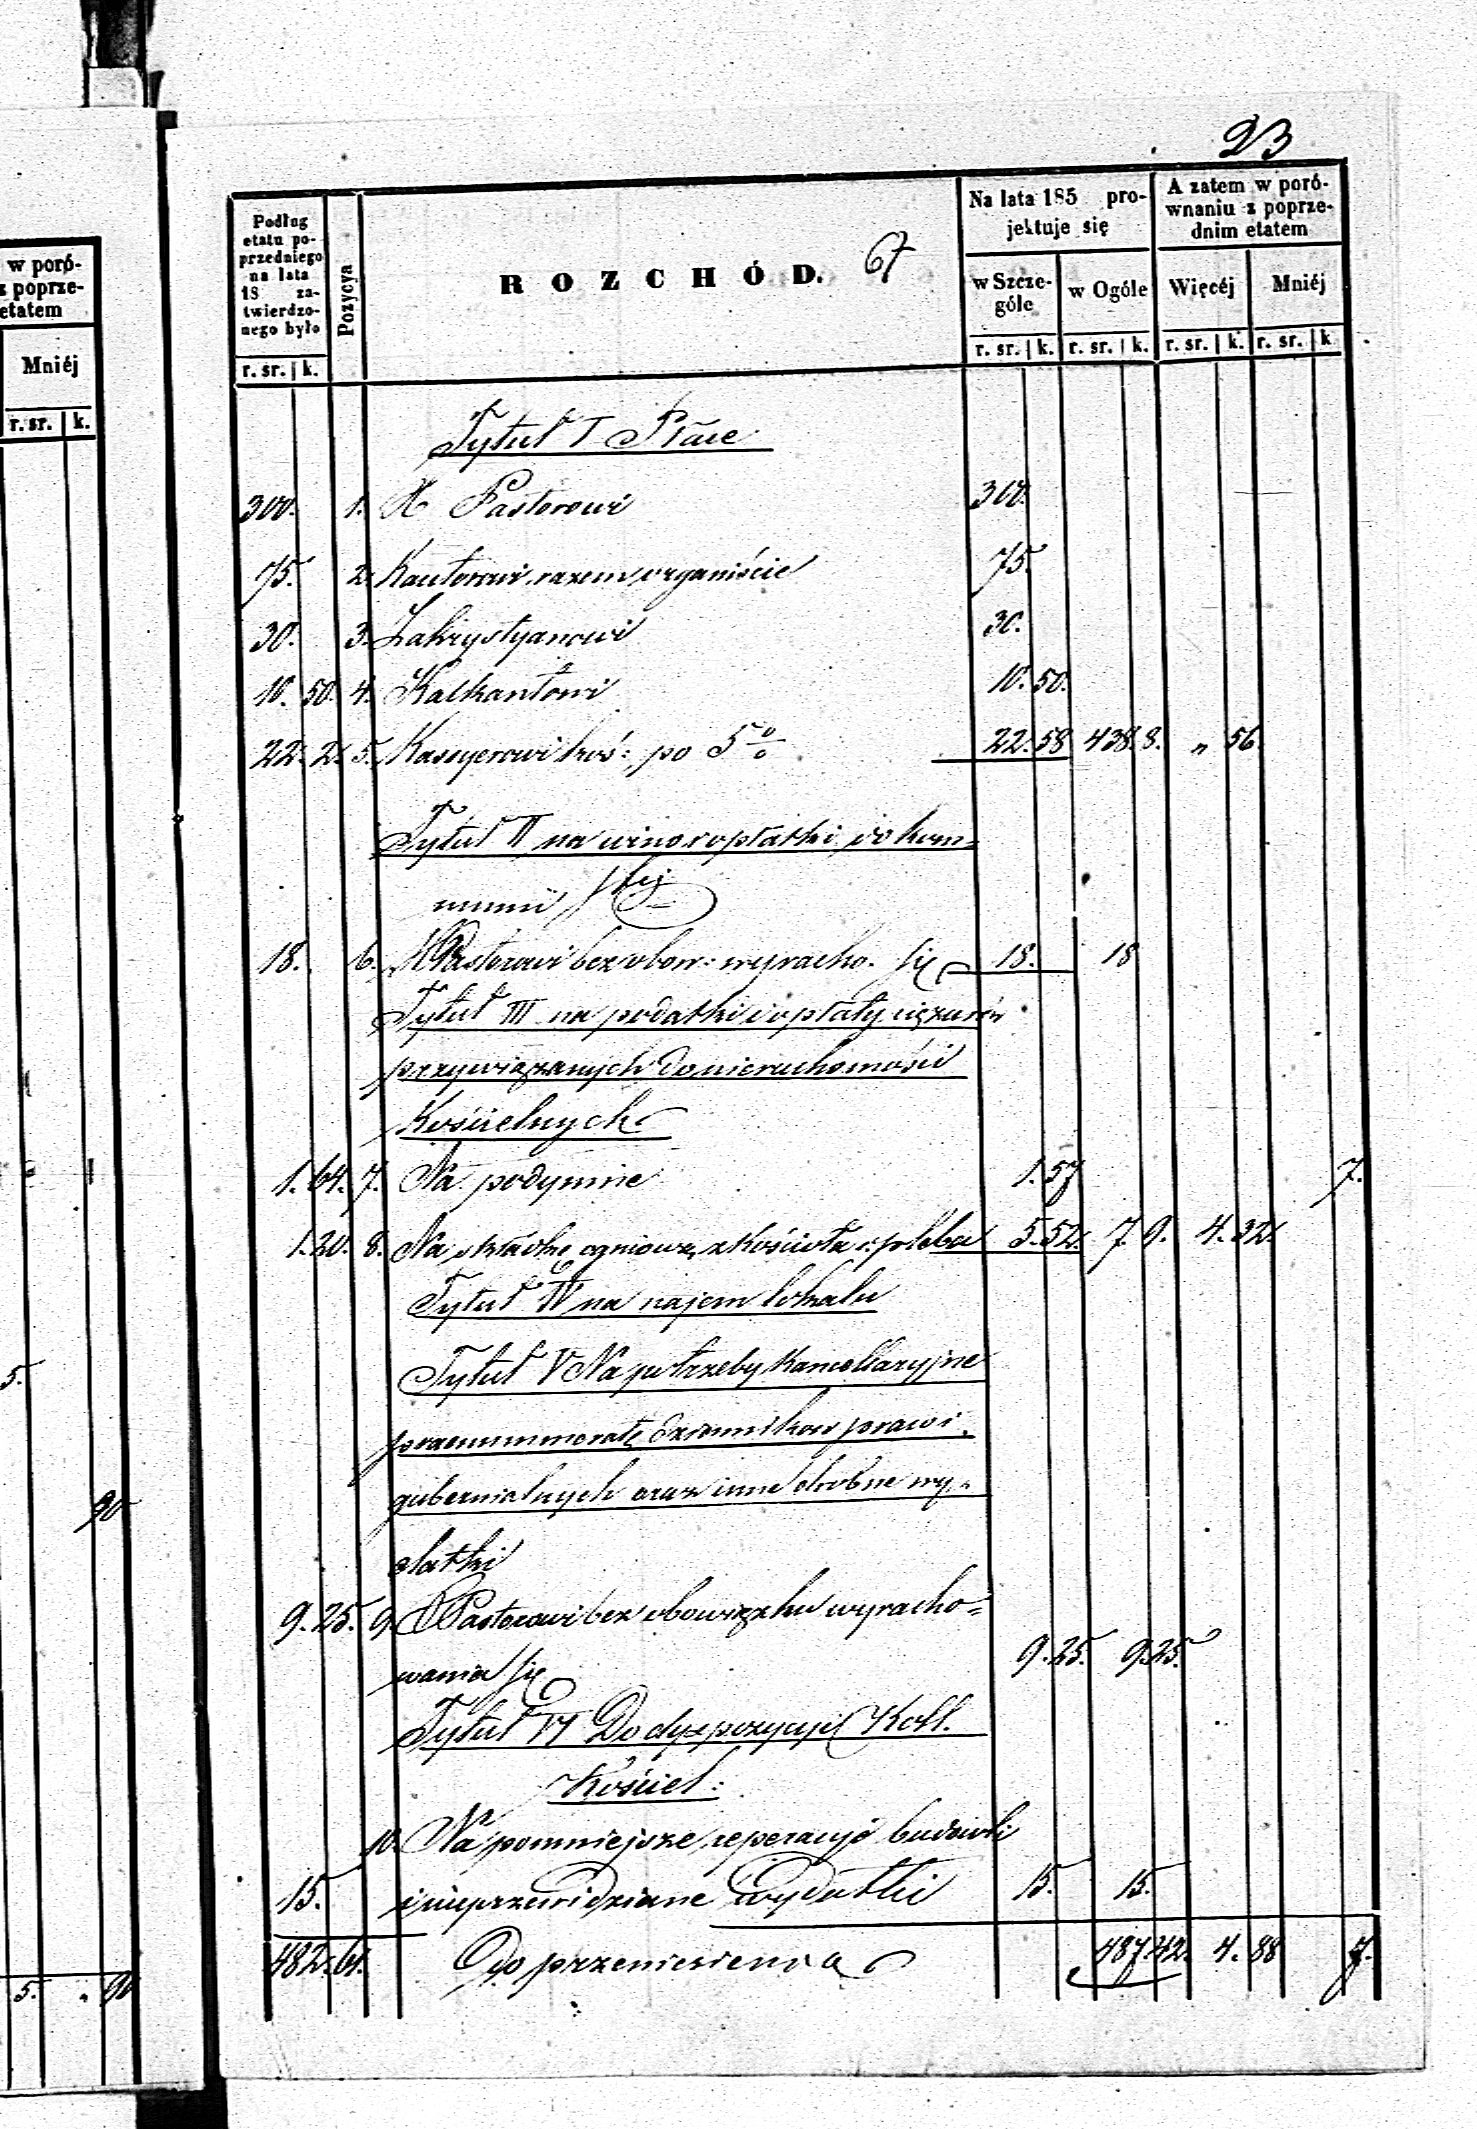 w poró-
z poprze-
etatem
Mniéj
r. sr. k.
5.
90
5. „ 90
23
Podług etatu poprzedniego na lata 18 zatwierdzonego było
r. sr. k.
Pozycya
ROZCHÓD. 67
Na lata 185 projektuje się
w Szczególe
w Ogóle
r. sr. k. r. sr. k.
A zatem w porównaniu z poprzednim etatem
Więcéj
Mniéj
r. sr. k. r. sr. k
Tytuł I Płace
300. 1. X Pastorowi 300.
75. 2. Kantorowi razem organiście 75.
30. 3. Zakrystyanowi 30.
10. 50. 4. Kalkantowi 10. 50.
22. 2. 5. Kassyerowi koś: po 5 % 22. 58 438. 8. „ 56.
Tytuł II na wino i opłatki do kom-
munii
18. 6. Pastorowi bez obow: wyracho. się 18. 18
Tytuł III na podatki i opłaty ciężarów
przywiązanych do nieruchomości
Kościelnych
1. 64. 7. Na podymne 1. 57 7.
1. 20. 8. Na składkę ogniową z kościoła i pleba 5. 52. 7. 9. 4. 32.
Tytuł IV na najem lokalu
Tytuł V Na potrzeby Kancellaryjne
praenumeratę dzienników praw i
gubernialnych oraz inne drobne wy-
datki
9. 25. 9. Pastorowi bez obowiązku wyracho-
wania się 9. 25. 9. 25.
Tytuł VI Do dyspozycyi Koll.
Kościel:
10. Na pomniejsze reperacyje budowli
15. i nieprzewidziane wydatki 15. 15.
482. 61. Do przeniesienia 487. 42. 4. 88 7.